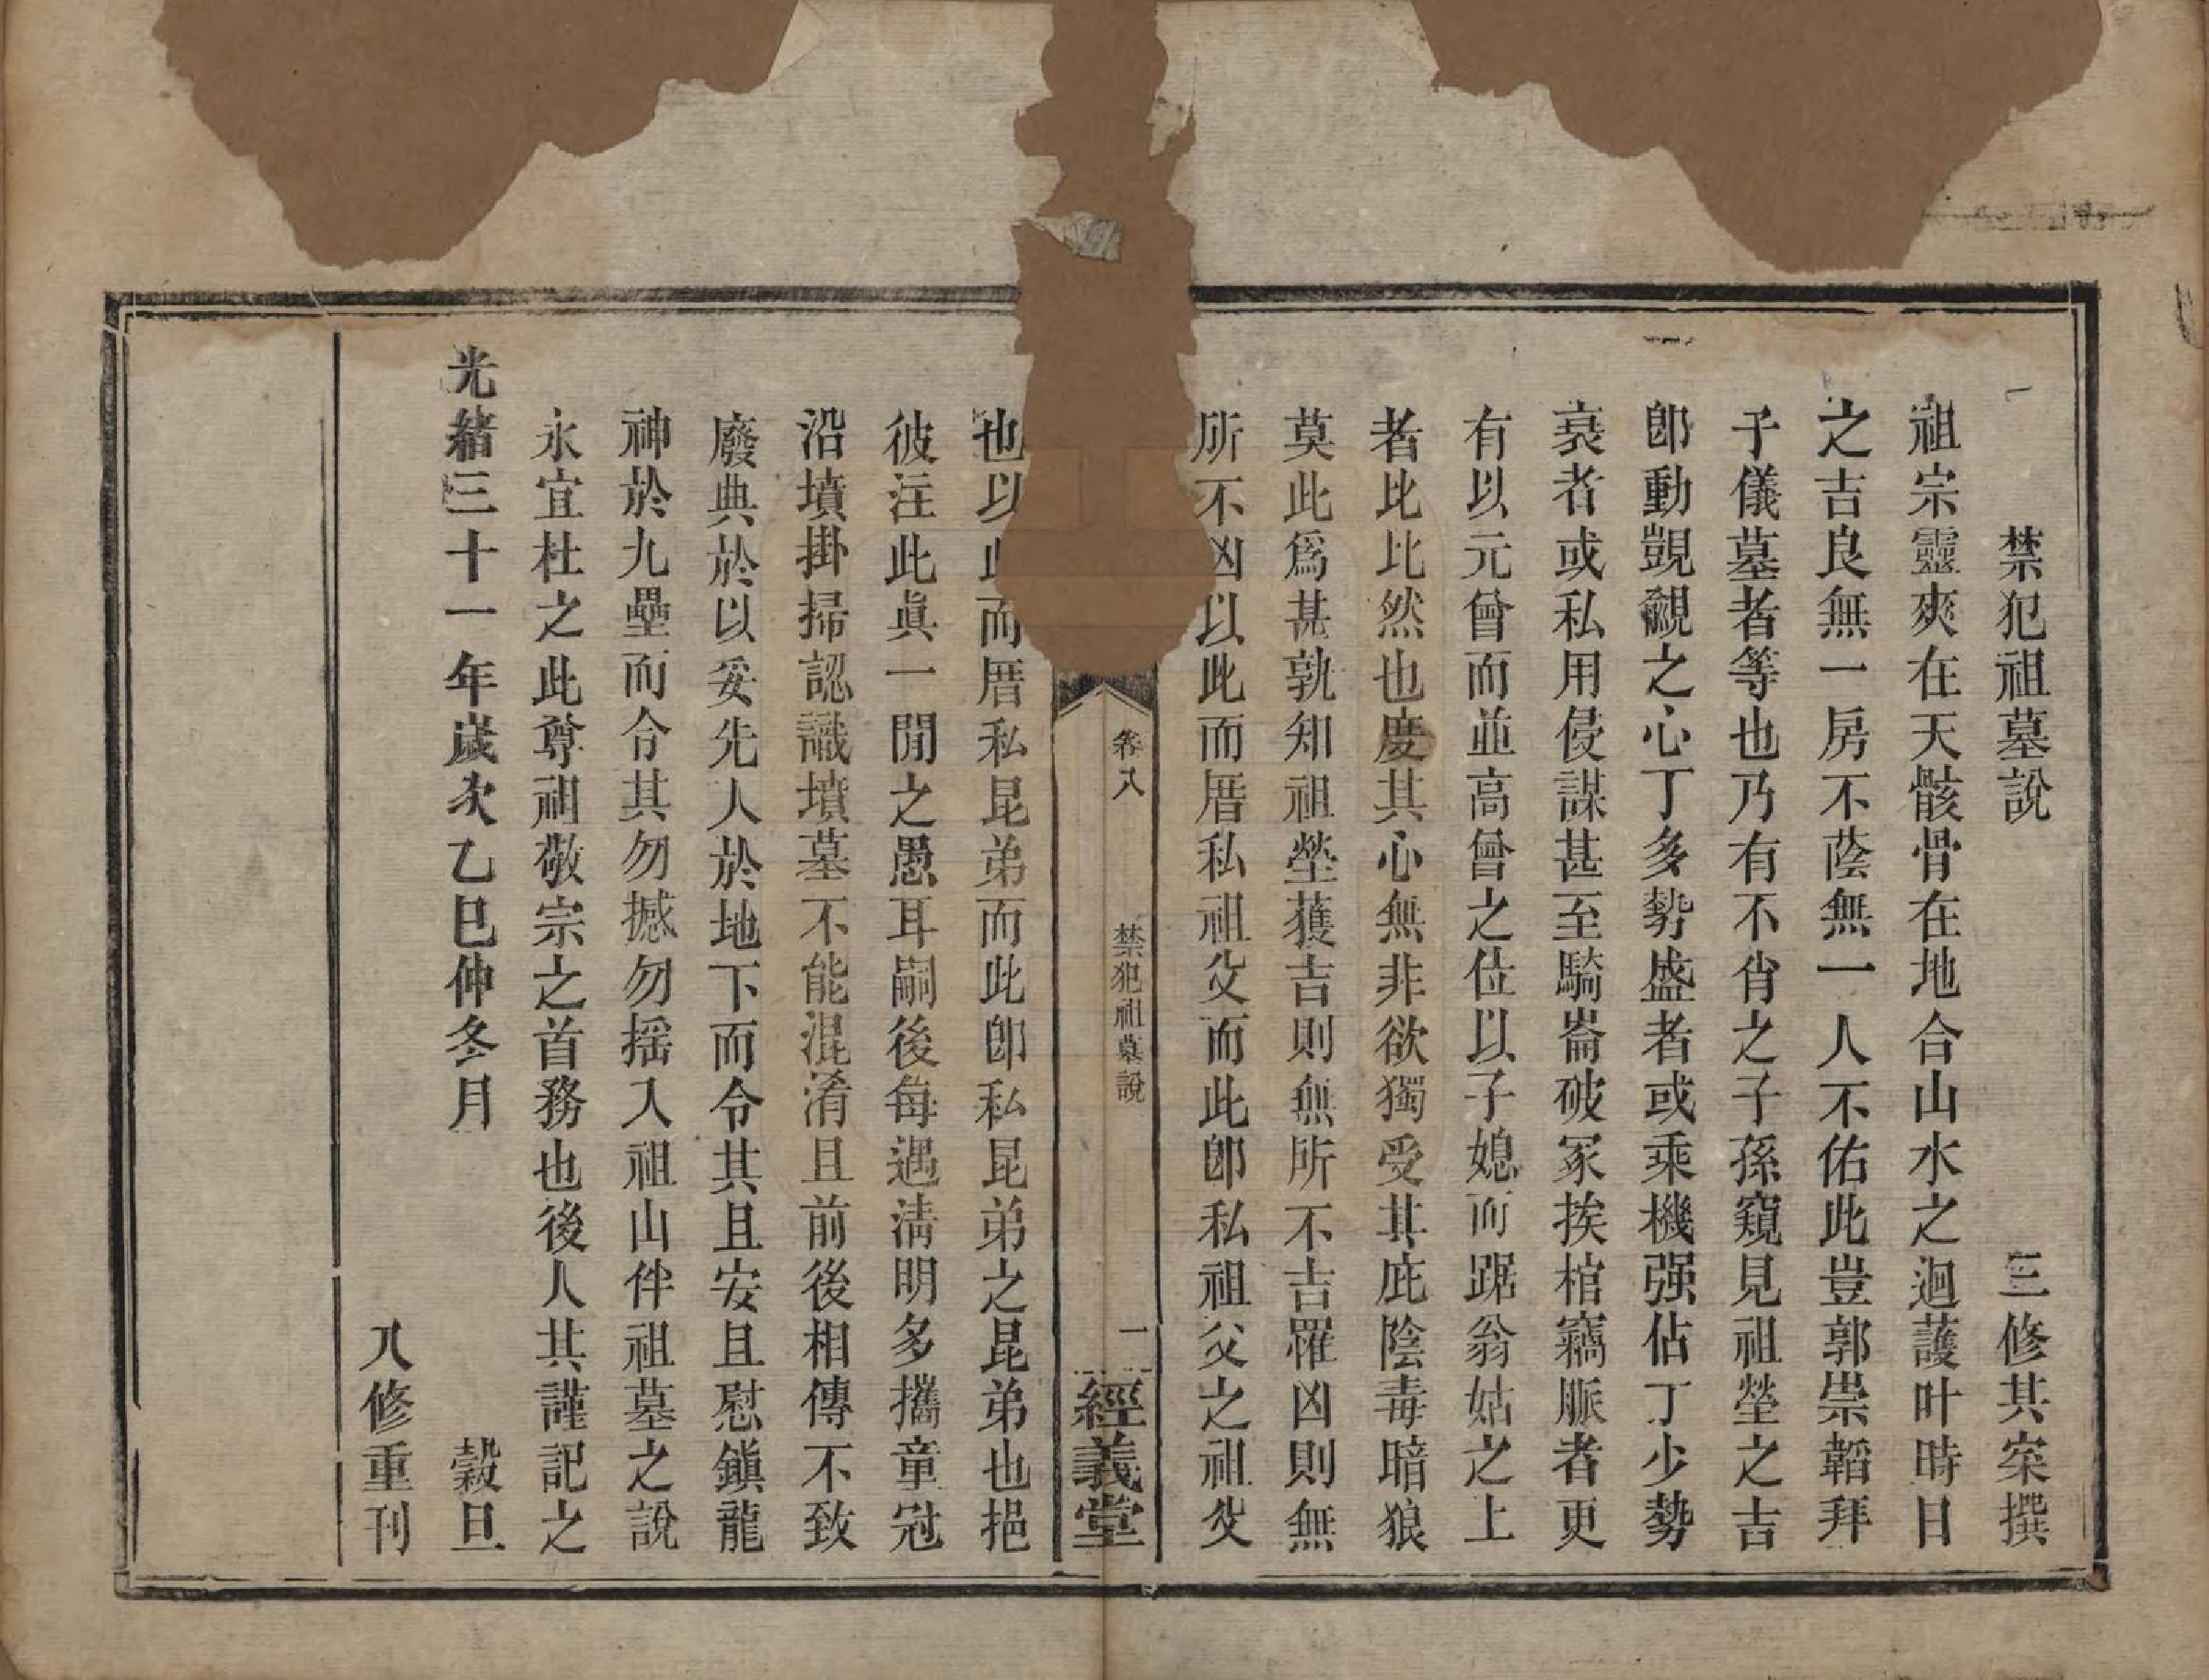 禁犯祖墓說　三修其寀撰
祖宗靈爽在天骸骨在地合山水之迴護叶時日
之吉良無一房不蔭無一人不佑此豈郭崇韜拜
子儀墓者等也乃有不肖之子孫窺見祖塋之吉
卽動覬覦之心丁多勢盛者或乘機强佔丁少勢
衰者或私用侵謀甚至騎崙破冢挨棺竊脈者更
有以元曾而並高曾之位以子媳而踞翁姑之上
者比比然也度其心無非欲獨受其庇陰毒暗狼
莫此爲甚孰知祖塋獲吉則無所不吉罹凶則無
所不凶以此而厝私祖父而此卽私祖父之祖父
卷八　禁犯祖墓說　一　經義堂
也以此而厝私昆弟而此卽私昆弟之昆弟也挹
彼注此眞一閒之愚耳嗣後每遇淸明多攜童冠
沿墳掛掃認識墳墓不能混淆且前後相傳不致
廢典於以妥先人於地下而令其且安且慰鎭龍
神於九壘而令其勿撼勿搖入祖山伴祖墓之說
永宜杜之此尊祖敬宗之首務也後人共謹記之
光緒三十一年歲次乙巳仲冬月　穀旦
八修重刊